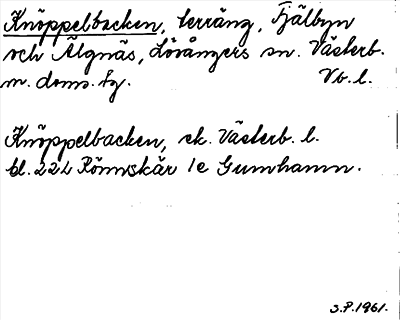 Knöppelbacken, terräng, Fjälbyn
och Älgnäs, Lövångers sn. Västerb.
m. doms. fg. Vb. l.
Knöppelbacken, ek. Västerb. l.
bl. 22L Rönnskär 1e Gumhamn.
S.P. 1961.